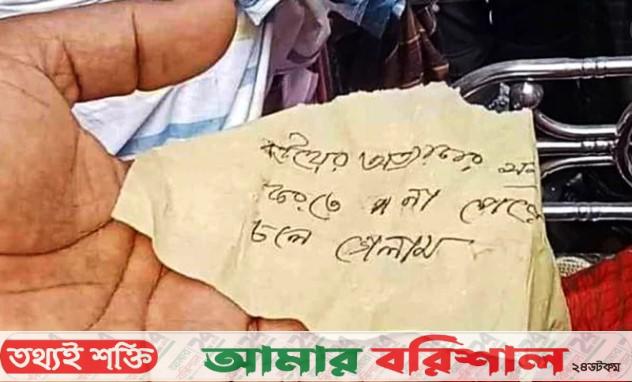 বউয়ের অত্যাচার সহ্য
করতে না পেরে
চলে গেলাম
তথ্যই শক্তি
আমার বরিশাল
২৪ডটকম